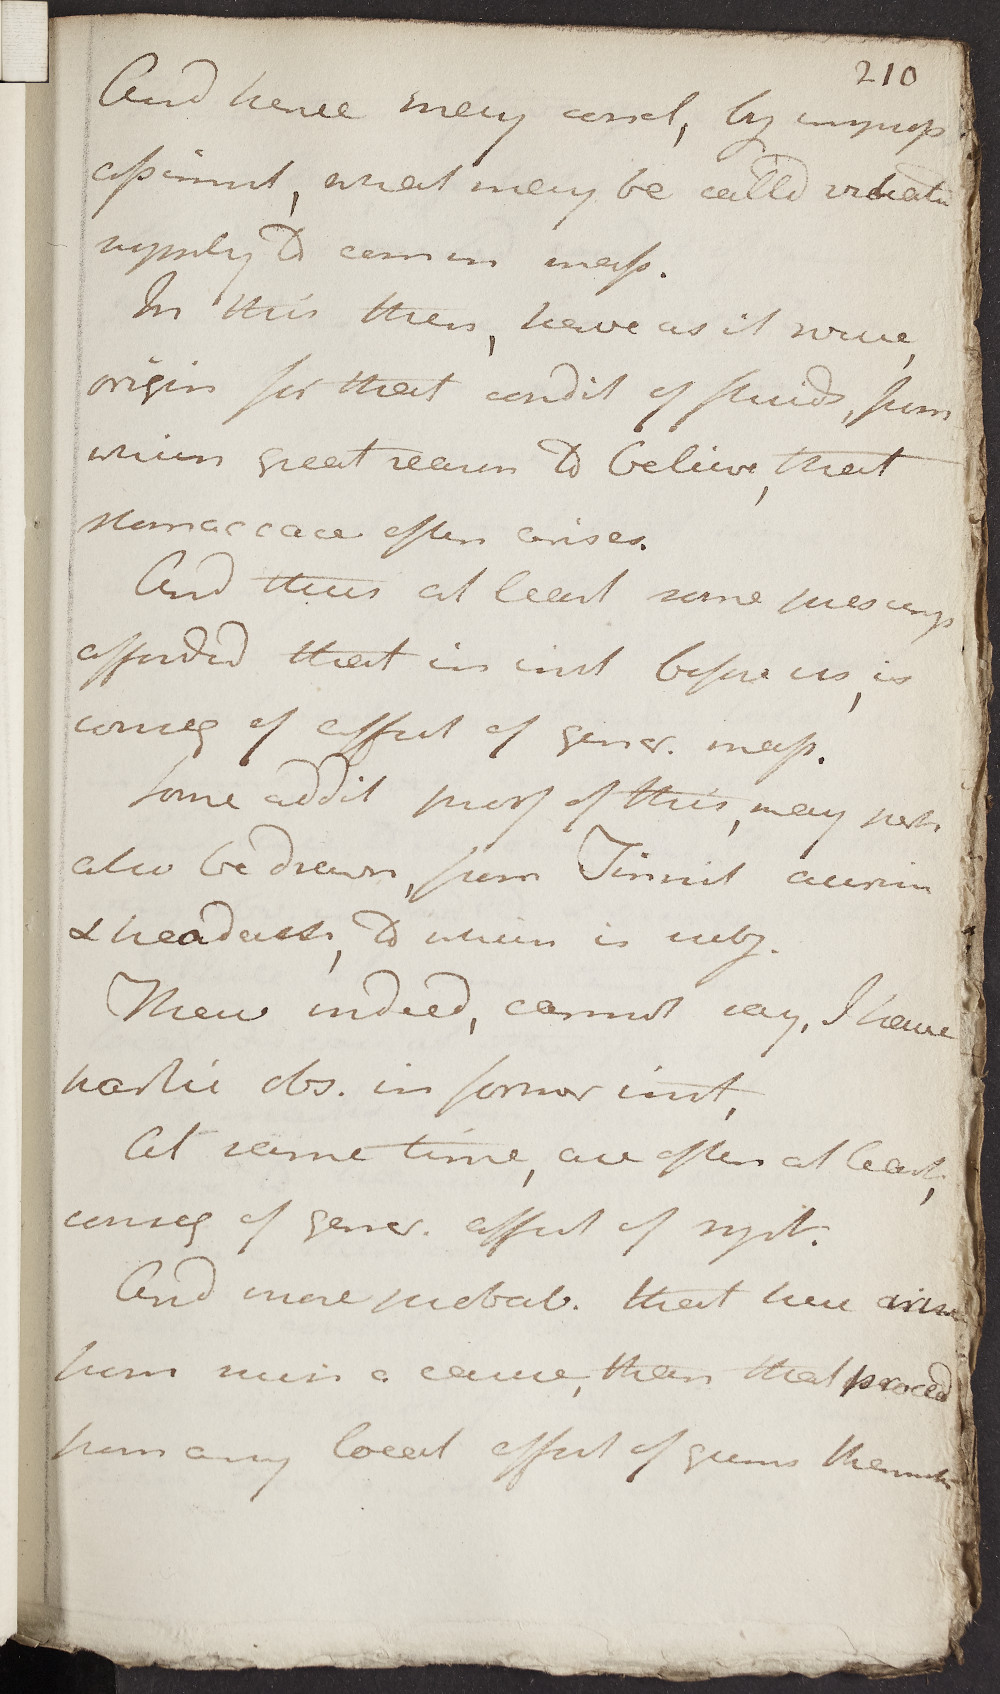 210
And hence may concl, by improp
assimit, what may be called vitiatn
supply to common mass.
In this then, have as it were,
origin for that condit of fluids, from
which great reason to believe, that
stomaccace often arises.
And thus at least some presump
afforded that in inst before us, is
conseq of affect of gener. mass.
Some addit proof of this, may perh
also be drawn, from Tinnit aurium
& headach, to which is subj.
These indeed, cannot say, I have
partic obs. in former inst,
At same time, are often at least,
conseq of gener. affect of syst.
And more probab. that here arise
from such a cause, than that proceed
from any local affect of gums themselv